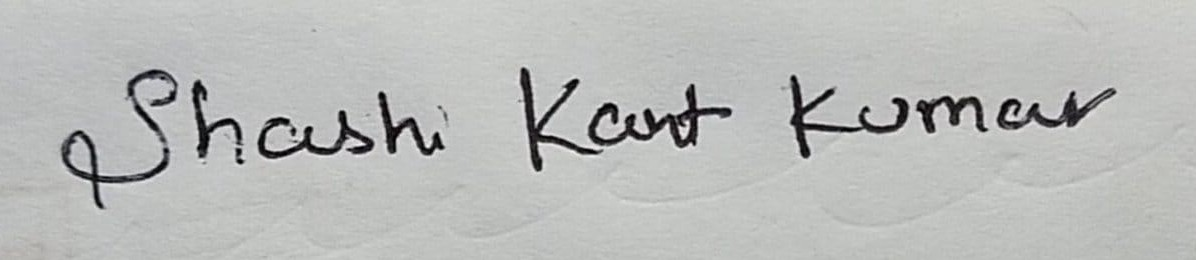 Shashi Kant Kumar